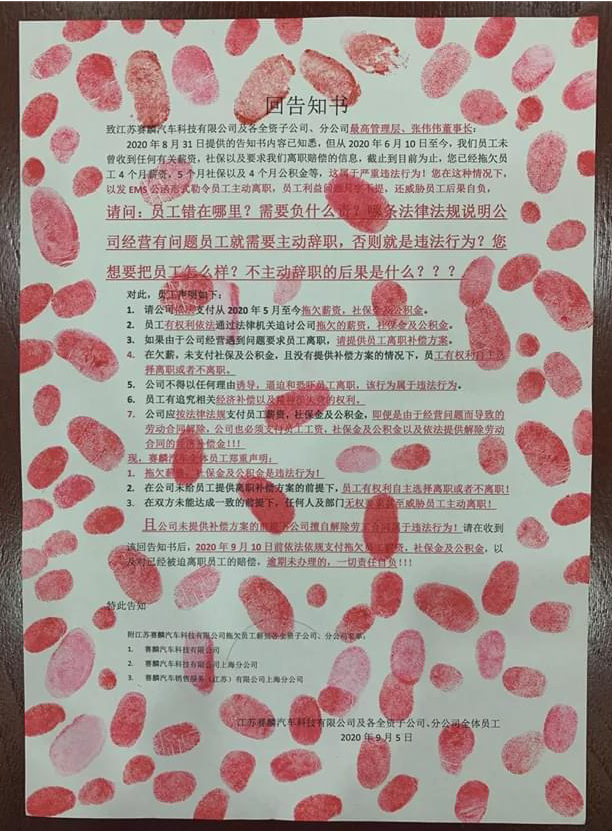 回告知书
致江苏赛麟汽车科技有限公司及各全资子公司、分公司最高管理层、张伟伟董事长：
2020 年 8 月 31 日提供的告知书内容已知悉，但从 2020 年 6 月 10 日至今，我们员工未
曾收到任何有关薪资，社保以及要求我们离职赔偿的信息，截止到目前为止，您已经拖欠员
工 4 个月薪资，5 个月社保以及 4 个月公积金等，这属于严重违法行为！您在这种情况下，
以发 EMS 公函形式勒令员工主动离职，员工利益问题只字不提，还威胁员工后果自负，
请问：员工错在哪里？需要负什么责？哪条法律法规说明公
司经营有问题员工就需要主动辞职，否则就是违法行为？您
想要把员工怎么样？不主动辞职的后果是什么？？？
对此，员工声明如下：
1. 请公司依法支付从 2020 年 5 月至今拖欠薪资，社保金及公积金。
2. 员工有权利依法通过法律机关追讨公司拖欠的薪资，社保金及公积金。
3. 如果由于公司经营遇到问题要求员工离职，请提供员工离职补偿方案。
4. 在欠薪，未支付社保及公积金，且没有提供补偿方案的情况下，员工有权利自主选
择离职或者不离职。
5. 公司不得以任何理由诱导，逼迫和恐吓员工离职，该行为属于违法行为。
6. 员工有追究相关经济补偿以及精神损失费的权利。
7. 公司应按法律法规支付员工薪资，社保金及公积金，即便是由于经营问题而导致的
劳动合同解除，公司也必须支付员工工资，社保金及公积金以及依法提供解除劳动
合同的经济补偿金!!!
现，赛麟汽车全体员工郑重声明：
1. 拖欠薪资，社保金及公积金是违法行为！
2. 在公司未给员工提供离职补偿方案的前提下，员工有权利自主选择离职或者不离职！
3. 在双方未能达成一致的前提下，任何人及部门无权要求甚至威胁员工主动离职！
且公司未提供补偿方案的前提下公司擅自解除劳动合同属于违法行为！请在收到
该回告知书后，2020 年 9 月 10 日前依法依规支付拖欠员工薪资，社保金及公积金，以
及对已经被迫离职员工的赔偿，逾期未办理的，一切责任自负!!!
特此告知
附江苏赛麟汽车科技有限公司拖欠员工薪资各全资子公司、分公司名单：
1. 赛麟汽车科技有限公司
2. 赛麟汽车科技有限公司上海分公司
3. 赛麟汽车销售服务（江苏）有限公司上海分公司
江苏赛麟汽车科技有限公司及各全资子公司、分公司全体员工
2020 年 9 月 5 日